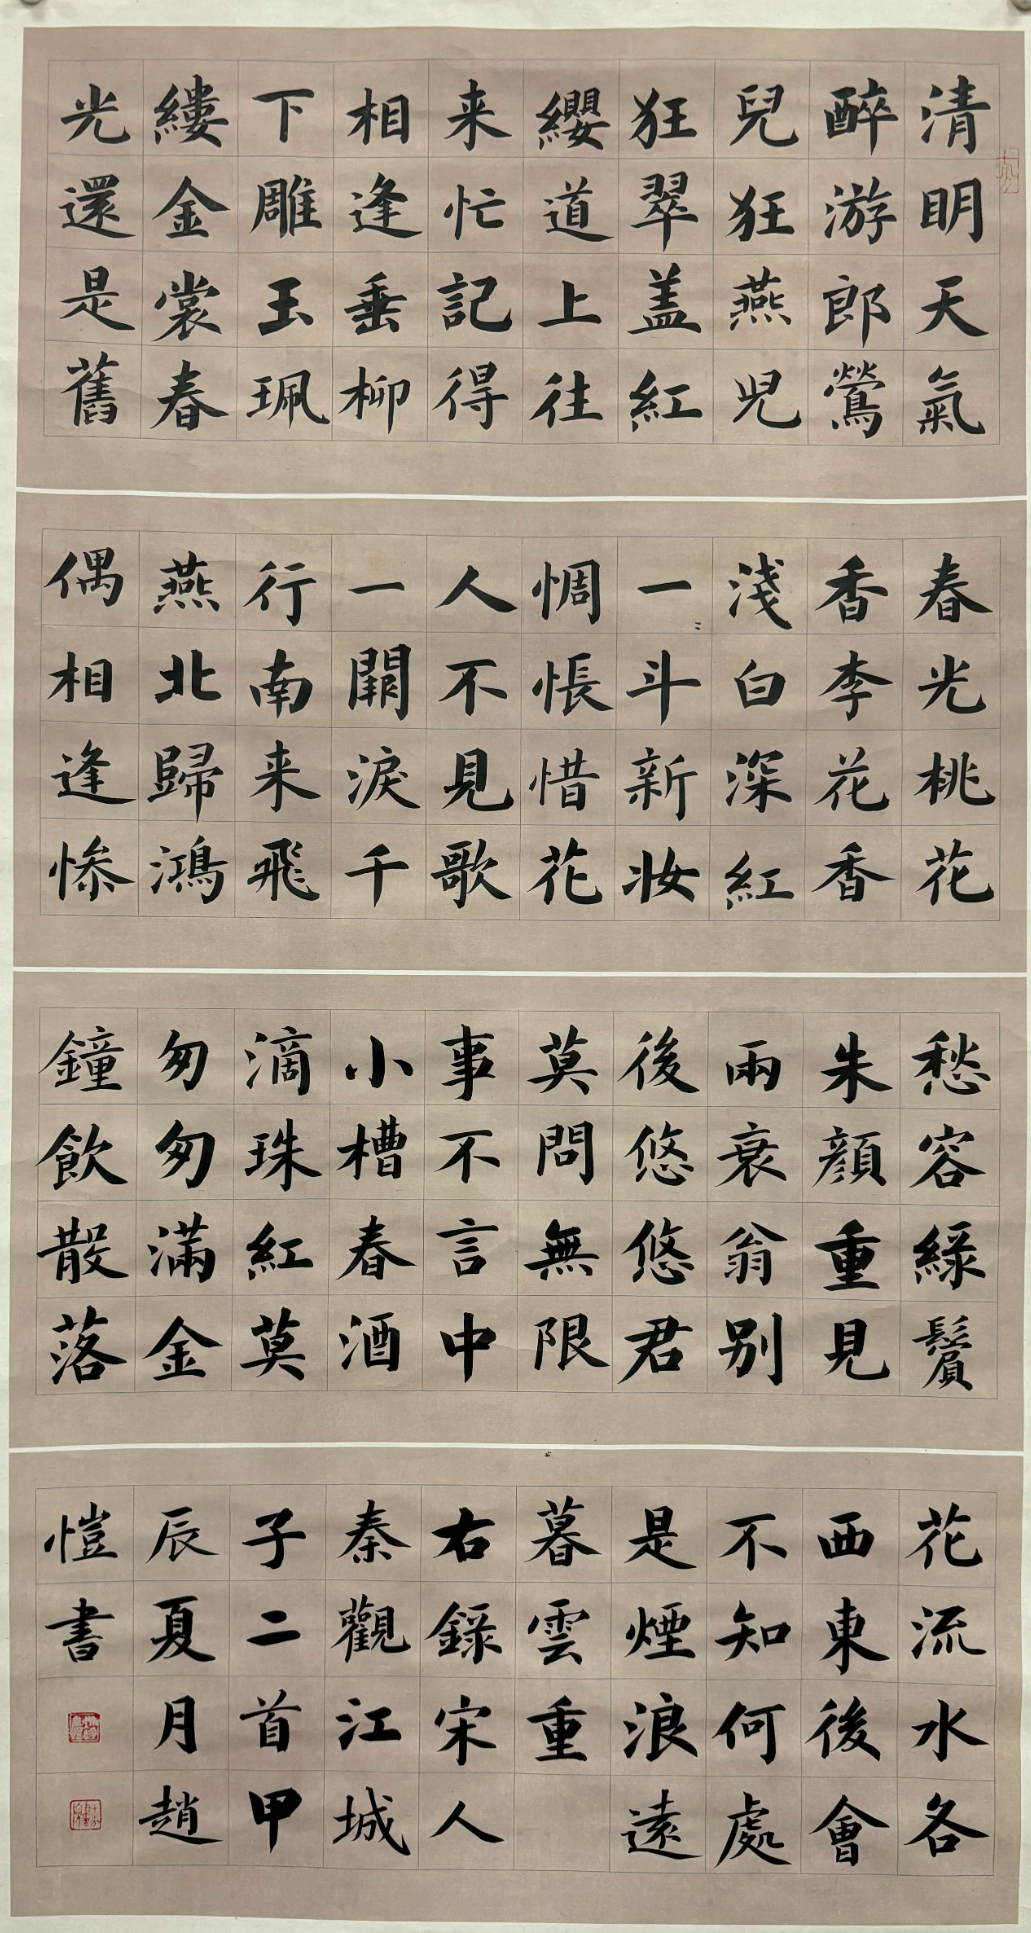 清明天氣
醉游郎鶯
兒狂燕兒
狂翠盖紅
纓道上往
来忙記得
相逢垂柳
下雕玉珮
縷金裳春
光還是舊
春光桃花
香李花香
淺白深紅
一〻斗新妝
惆悵惜花
人不見歌
一闋淚千
行南来飛
燕北歸鴻
偶相逢慘
愁容緑鬢
朱顔重見
兩衰翁别
後悠悠君
莫問無限
事不言中
小槽春酒
滴珠紅莫
匆匆滿金
鐘飲散落
花流水各
西東後會
不知何處
是煙浪遠
暮雲重
右録宋人
秦觀江城
子二首甲
辰夏月趙
愷書